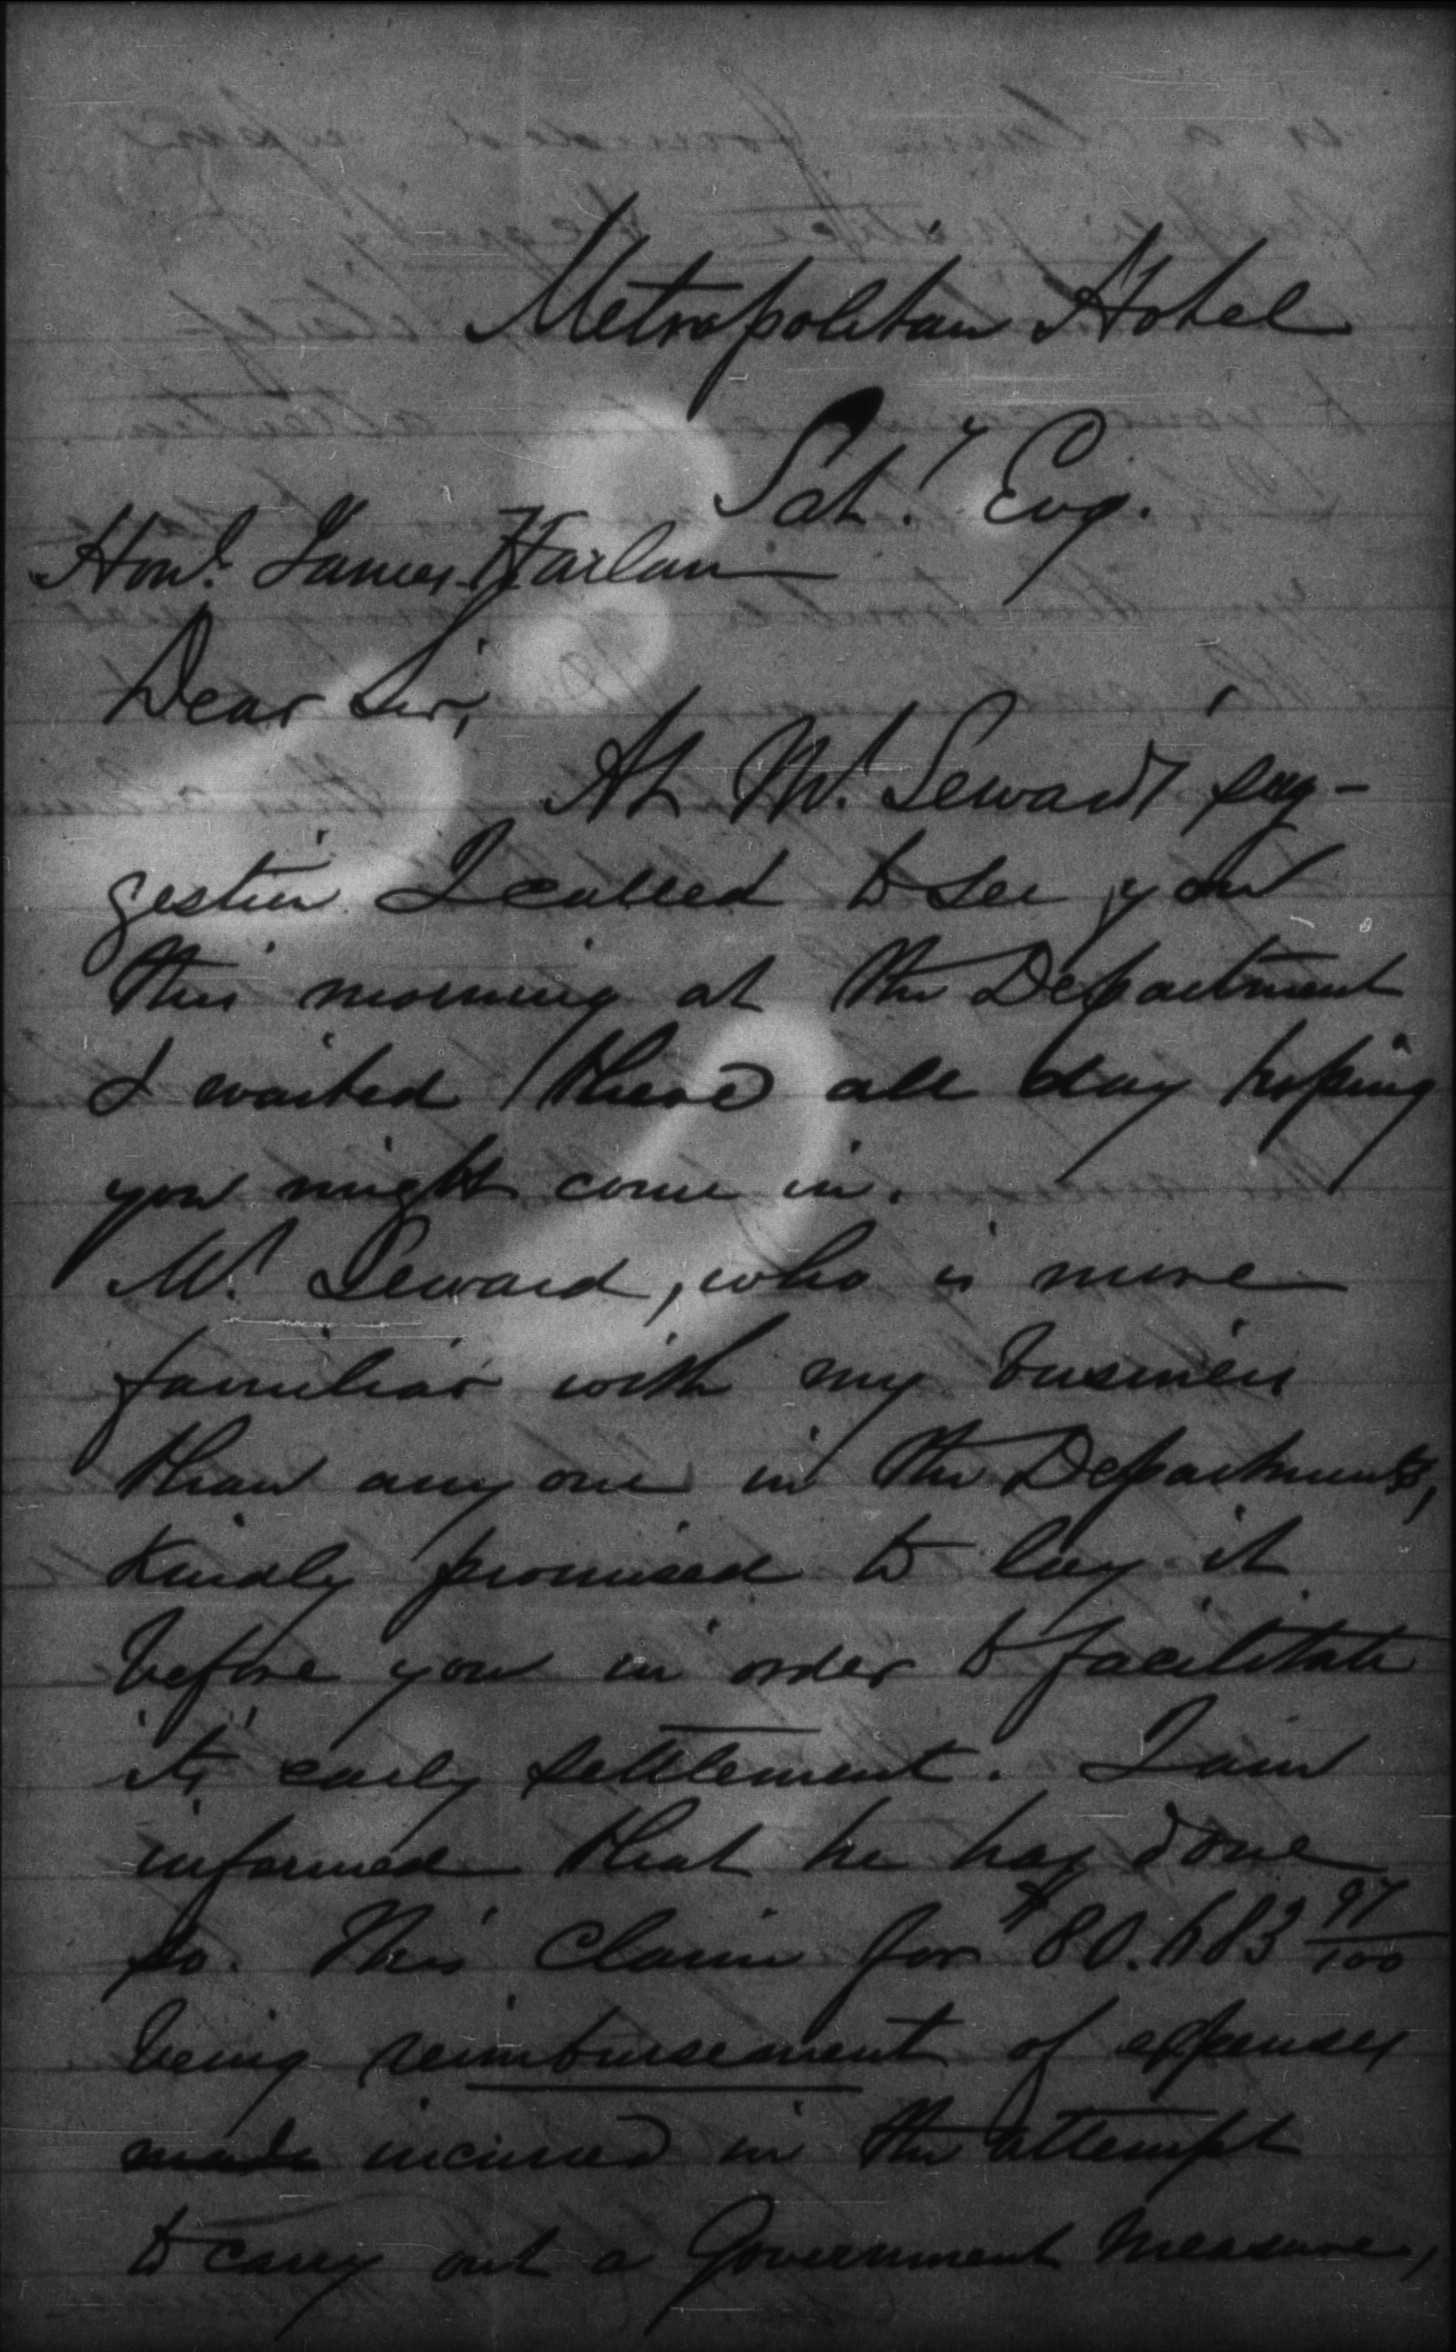 Metropolitan Hotel
Sat.y Evg.
Honl. James Harlan
Dear Sir,
At Mr. Seward's sug-
gestion I called to see you
this morning at the Department
I waited there all day hoping
you might come in.
Mr. Seward, who is more
familiar with my business
than any one in the Departments,
kindly promised to lay it
before you in order to facilitate
its early settlement. I am
informed that he has done
so. This claim for $80.683 97/100
being reimbursement of expenses
made incurred in the attempt
to carry out a Government measure,